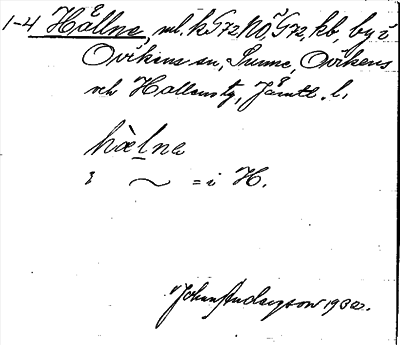 1-4 Hållne, ml. k G72 NÖ G72, kb, by i
Ovikens sn, Sunne, Ovikens
och Hallens tg, Jämtl. l.
hælne
i ~ = i H.
Johan Anderson 1932.